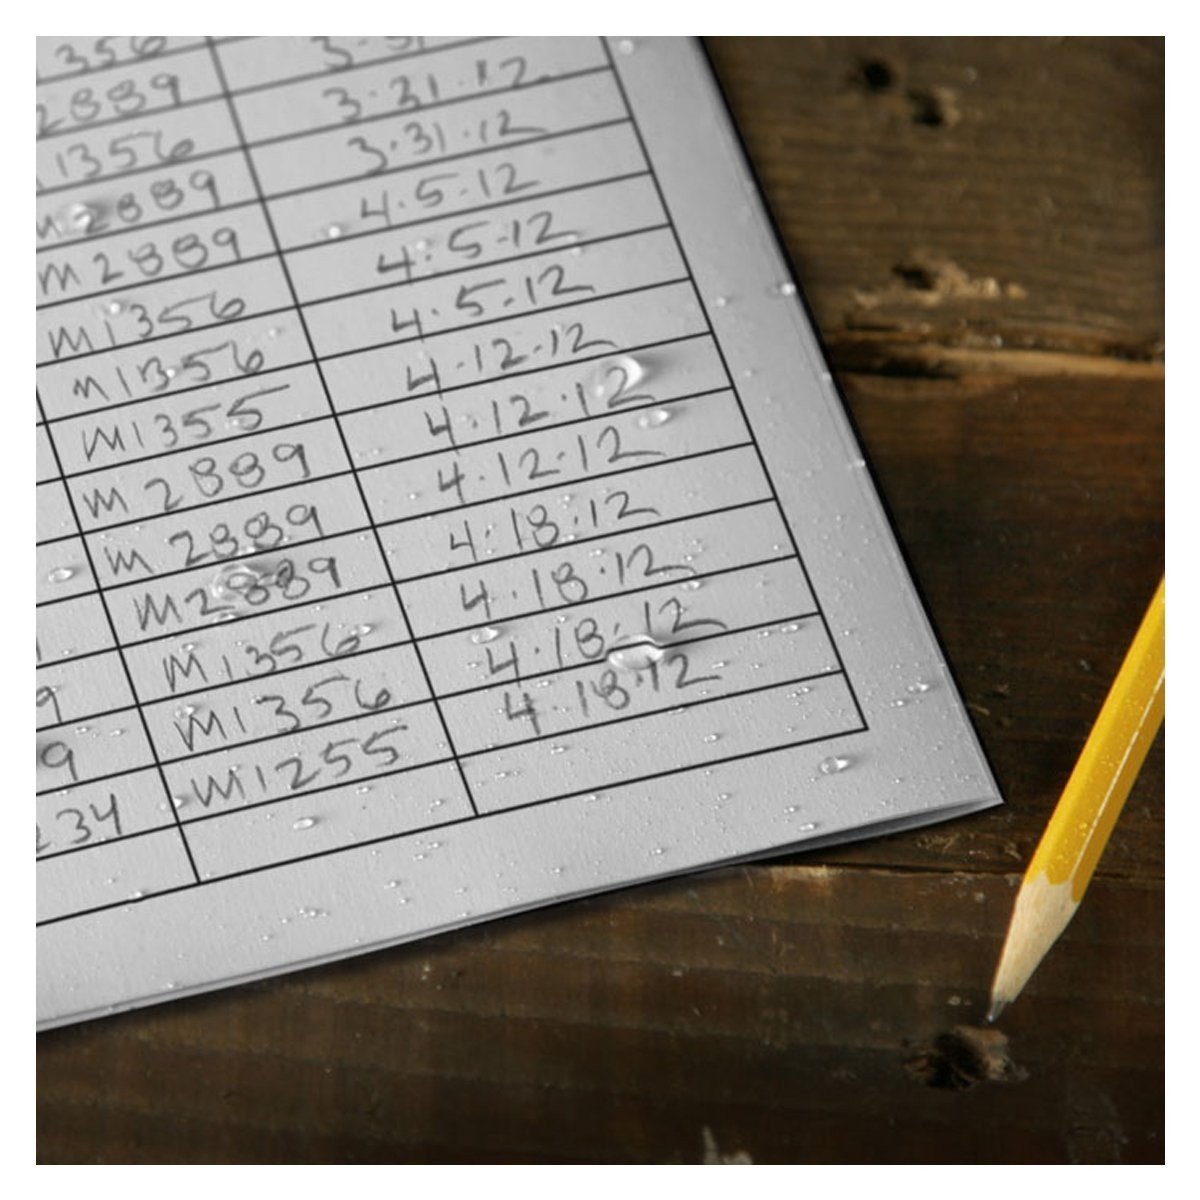 356
2889 3·31
1356 3·31·12
m 2889 3·31·12
m 2889 4·5·12
m 1356 4·5·12
m 1356 4·5·12
M 1355 4·12·12
m 2889 4·12·12
m 2889 4·12·12
M 2889 4·18·12
9 M 1356 4·18·12
9 M 1356 4·18·12
234 M 1255 4·18·12